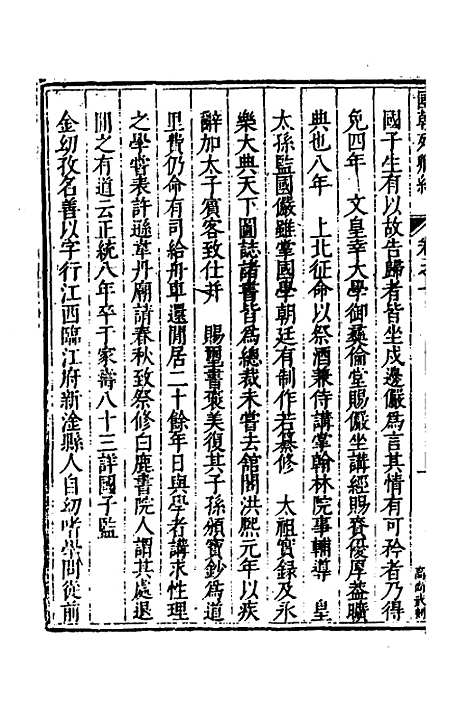 國朝列卿紀
卷之
國子生有以故告歸者皆坐戍邊儼為言其情有可矜者乃得
免四年 文皇幸大學御彝倫堂賜儼坐講經賜賚優厚葢曠
典也八年 上北征命以祭酒兼侍講掌翰林院事輔導 皇
太孫監國儼雖掌國學朝廷有制作若纂修 太祖實録及永
樂大典天下圖誌諸書皆為總裁未嘗去舘閣洪熙元年以疾
辭加太子賓客致仕并 賜璽書褒美復其子孫頒寳鈔為道
里費仍命有司給舟車還閒居二十餘年日與學者講求性理
之學嘗表許遜韋丹廟請春秋致祭修白鹿書院人謂其處退
閒之有道云正統八年卒于家壽八十三詳國子監
金幼孜名善以字行江西臨江府新淦縣人自幼嗜學問從前